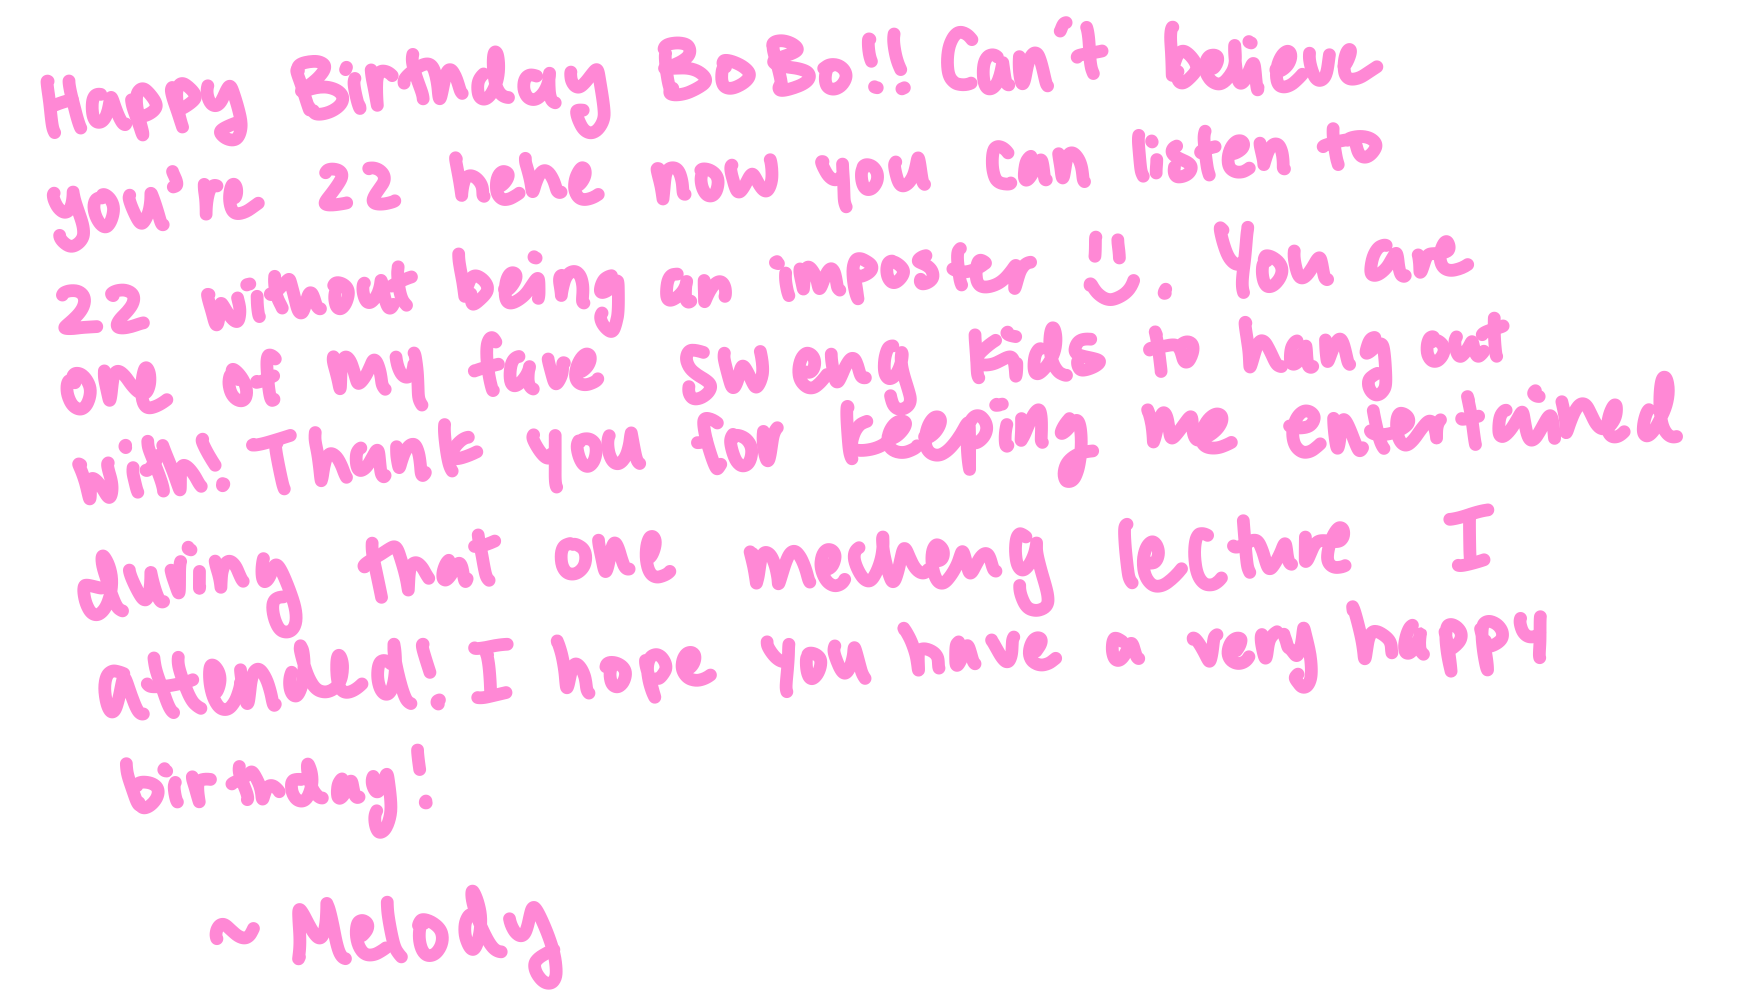 Happy Birthday BoBo!! Can't believe
you're 22 hehe now you can listen to
22 without being an imposter :). You are
one of my fave sweng kids to hang out
with! Thank you for keeping me entertained
during that one mecheng lecture I
attended! I hope you have a very happy
birthday!
~ Melody